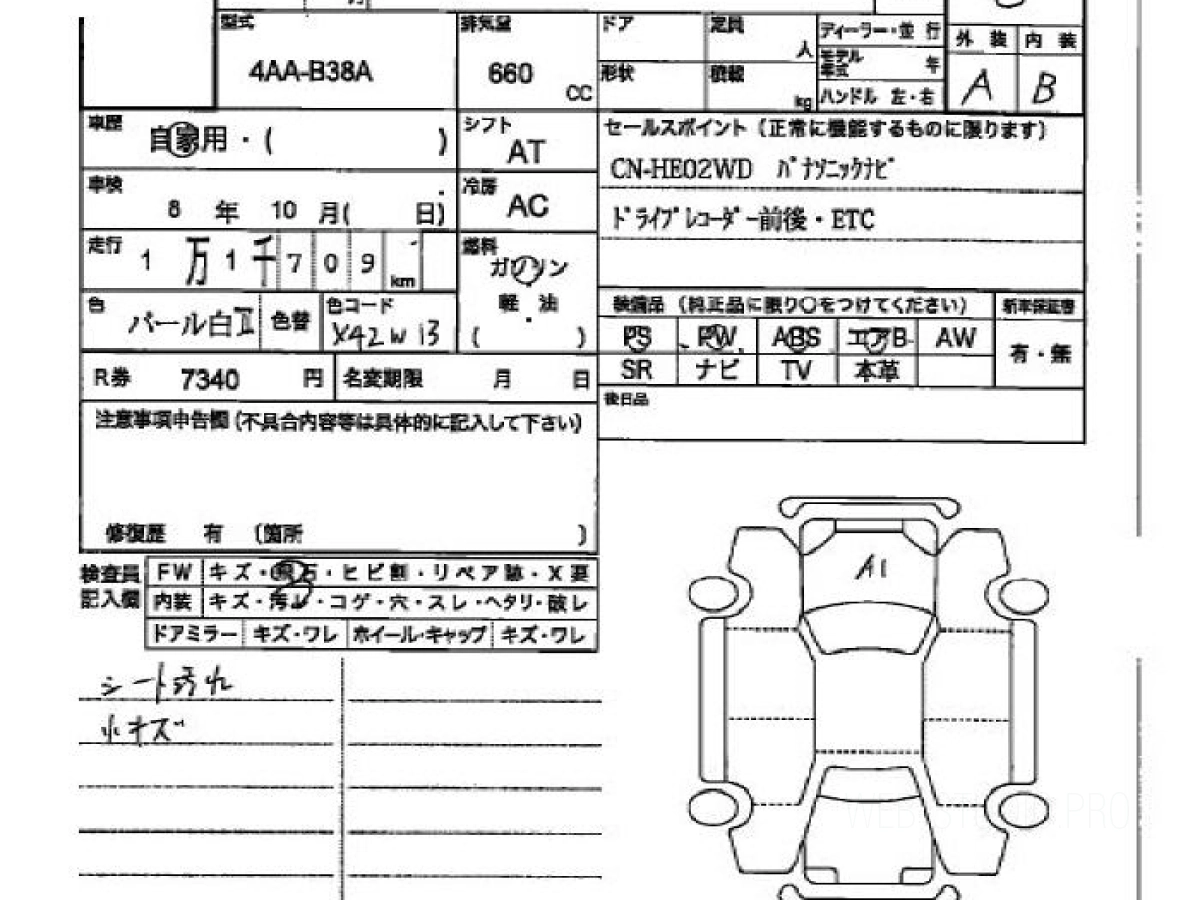 型式 排気量 ドア 定員 ディーラー・並 行 外 装 内 装
4AA-B38A 660 CC 人 モデル年式 年 A B
形状 積載 kg ハンドル 左・右
車歴 自家用・( ) シフト AT セールスポイント（正常に機能するものに限ります）
CN-HE02WD パナソニックナビ
車検 8 年 10 月( 日) 冷房 AC
ドライブレコーダー前後・ETC
走行 1 万 1 千 7 0 9 km 燃料 ガソリン
軽・油
( )
色 パール白Ⅱ 色替 色コード X42W 13
装備品（純正品に限り〇をつけてください） 新車保証書
PS PW ABS エアB AW 有・無
SR ナビ TV 本革
R券 7340 円 名変期限 月 日
後日品
注意事項申告欄（不具合内容等は具体的に記入して下さい）
修復歴 有 （箇所 ）
検査員記入欄 FW キズ・飛石・ヒビ割・リペア跡・X要
内装 キズ・汚レ・コゲ・穴・スレ・ヘタリ・破レ
ドアミラー キズ・ワレ ホイール・キャップ キズ・ワレ
シート汚れ
小キズ
A1